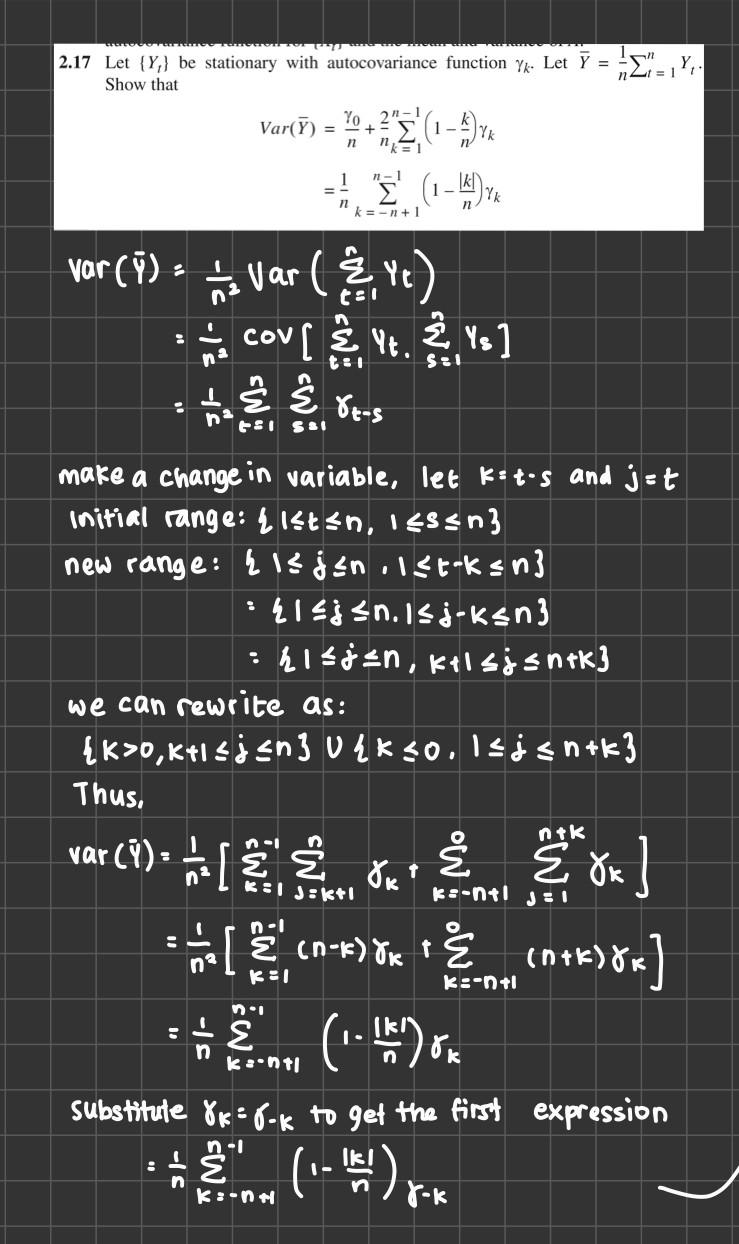 2.17 Let {Y_t} be stationary with autocovariance function γ_k. Let Ȳ = 1/n ∑_{t=1}^{n} Y_t.
Show that
Var(Ȳ) = γ_0/n + 2/n ∑_{k=1}^{n-1} (1 - k/n) γ_k
= 1/n ∑_{k=-n+1}^{n-1} (1 - |k|/n) γ_k
var(Ȳ) = 1/n² Var( ∑_{t=1}^{n} Y_t )
= 1/n² cov[ ∑_{t=1}^{n} Y_t, ∑_{s=1}^{n} Y_s ]
= 1/n² ∑_{t=1}^{n} ∑_{s=1}^{n} γ_{t-s}
make a change in variable, let k=t-s and j=t
Initial range: {1≤t≤n, 1≤s≤n}
new range: {1≤j≤n, 1≤t-k≤n}
= {1≤j≤n, 1≤j-k≤n}
= {1≤j≤n, k+1≤j≤n+k}
we can rewrite as:
{k>0, k+1≤j≤n} ∪ {k≤0, 1≤j≤n+k}
Thus,
var(Ȳ) = 1/n² [ ∑_{k=1}^{n-1} ∑_{j=k+1}^{n} γ_k + ∑_{k=-n+1}^{0} ∑_{j=1}^{n+k} γ_k ]
= 1/n² [ ∑_{k=1}^{n-1} (n-k)γ_k + ∑_{k=-n+1}^{0} (n+k)γ_k ]
= 1/n ∑_{k=-n+1}^{n-1} (1 - |k|/n) γ_k
substitute γ_k = γ_{-k} to get the first expression
= 1/n ∑_{k=-n+1}^{n-1} (1 - |k|/n) γ_{-k}